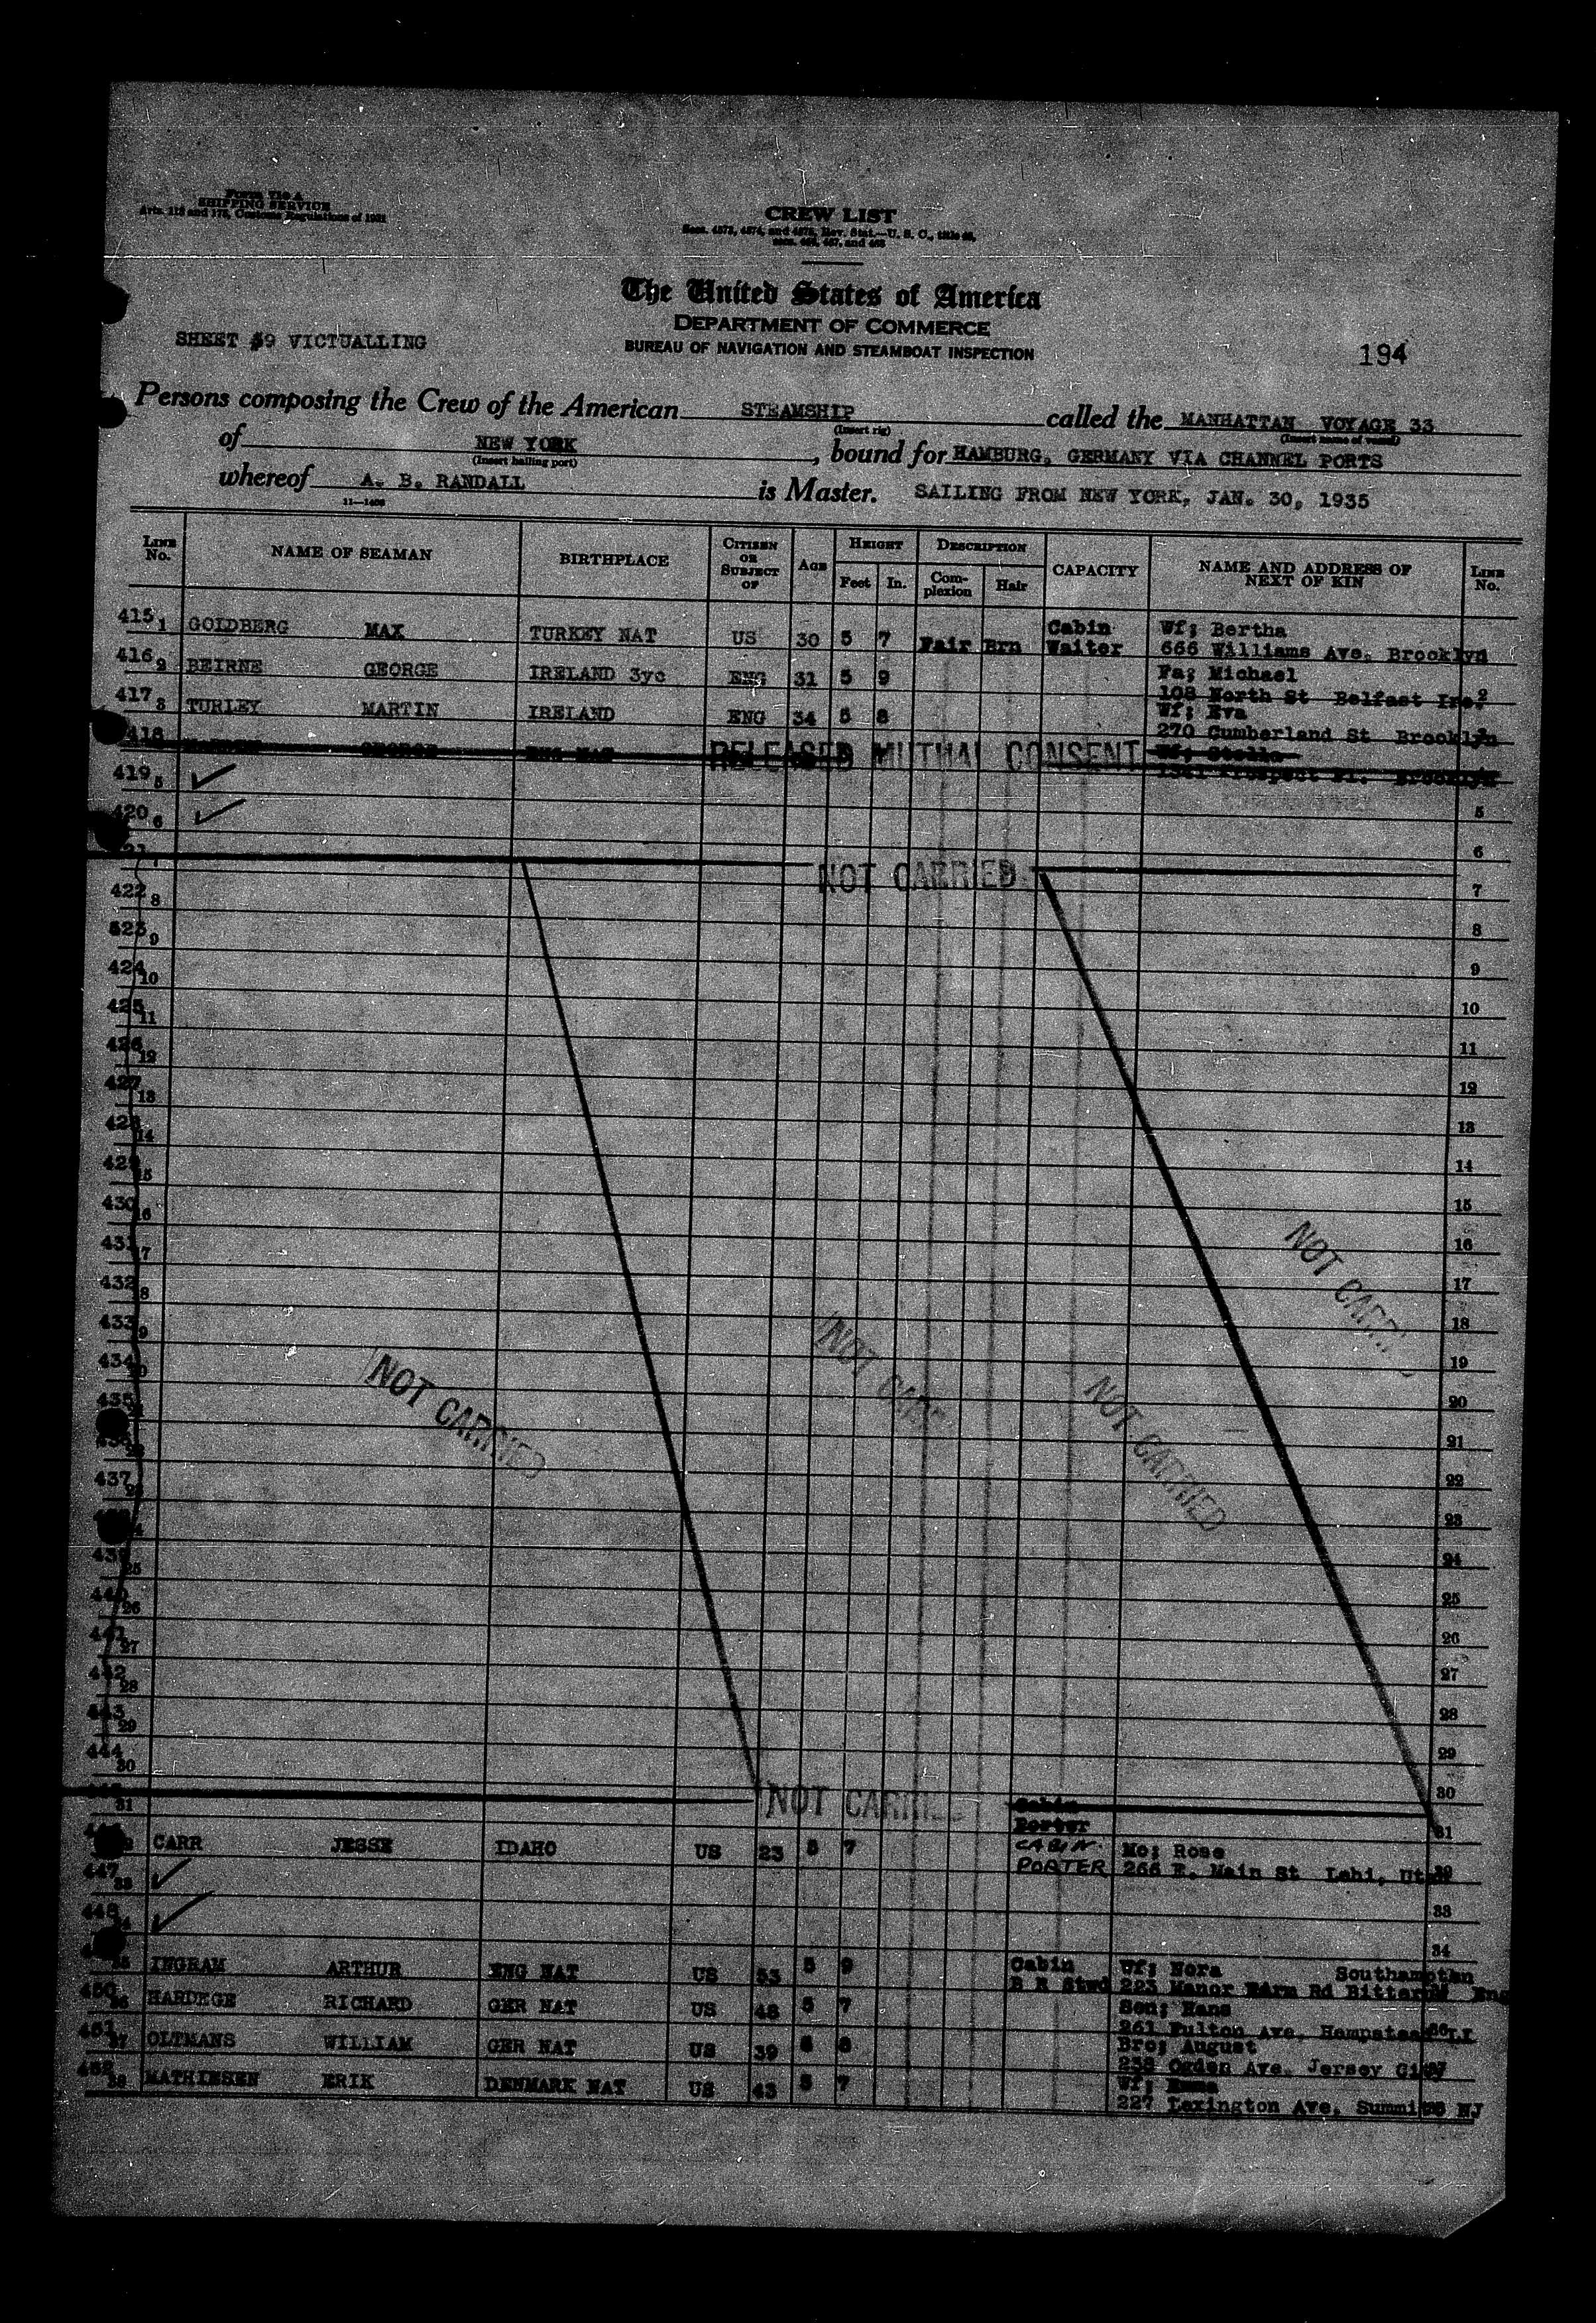 Form 710 A
SHIPPING SERVICE
Arts. 118 and 178, Customs Regulations of 1931
CREW LIST
Secs. 4573, 4574, and 4575, Rev. Stat.—U. S. C., title 46,
secs. 466, 467, and 468
The United States of America
DEPARTMENT OF COMMERCE
BUREAU OF NAVIGATION AND STEAMBOAT INSPECTION
SHEET 59 VICTUALLING
194
Persons composing the Crew of the American STEAMSHIP called the MANHATTAN VOYAGE 33
(Insert rig) (Insert name of vessel)
of NEW YORK, bound for HAMBURG, GERMANY VIA CHANNEL PORTS
(Insert hailing port)
whereof A. B. RANDALL is Master. SAILING FROM NEW YORK, JAN. 30, 1935
11—1406
LINE No. NAME OF SEAMAN BIRTHPLACE CITIZEN OR SUBJECT OF AGE HEIGHT Feet In. DESCRIPTION Complexion Hair CAPACITY NAME AND ADDRESS OF NEXT OF KIN LINE No.
415 1 GOLDBERG MAX TURKEY NAT US 30 5 7 Fair Brn Cabin Waiter Wf; Bertha
666 Williams Ave. Brooklyn
416 2 BEIRNE GEORGE IRELAND 3yc ENG 31 5 9 Fa; Michael
108 North St Belfast Ire. 2
417 3 TURLEY MARTIN IRELAND ENG 34 5 8 Wf; Eva
270 Cumberland St Brooklyn
418 GEORGE ENG NAT RELEASED MUTUAL CONSENT Wf; Stella
1341 Prospect Pl. Brooklyn
419 5
420 6 5
421 7 NOT CARRIED 6
422 8 7
423 9 8
424 10 9
425 11 10
426 12 11
427 13 12
428 14 13
429 15 14
430 16 15
431 17 16
432 18 17
433 19 18
434 20 19
435 20
436 22 21
437 23 22
23
439 25 24
440 26 25
441 27 26
442 28 27
443 29 28
444 30 29
NOT CARRIED
NOT CARRIED
NOT CARRIED
NOT CARRIED
31 NOT CARRIED Cabin 30
Porter 31
CARR JESSE IDAHO US 23 5 7 CABIN PORTER Mo; Rose
266 E. Main St Lehi, Utah
447 33
448 33
34
35 INGRAM ARTHUR ENG NAT US 53 5 9 Cabin B R Stwd Wf; Nora Southampton
223 Manor Farm Rd Bitterne Eng
450 36 HARDEGE RICHARD GER NAT US 48 5 7 Son; Hans
261 Fulton Ave. Hempstead LI
451 37 OLTMANS WILLIAM GER NAT US 39 5 8 Bro; August
238 Ogden Ave. Jersey City
452 38 MATHIESEN ERIK DENMARK NAT US 43 5 7 Wf; Emma
227 Lexington Ave. Summit NJ